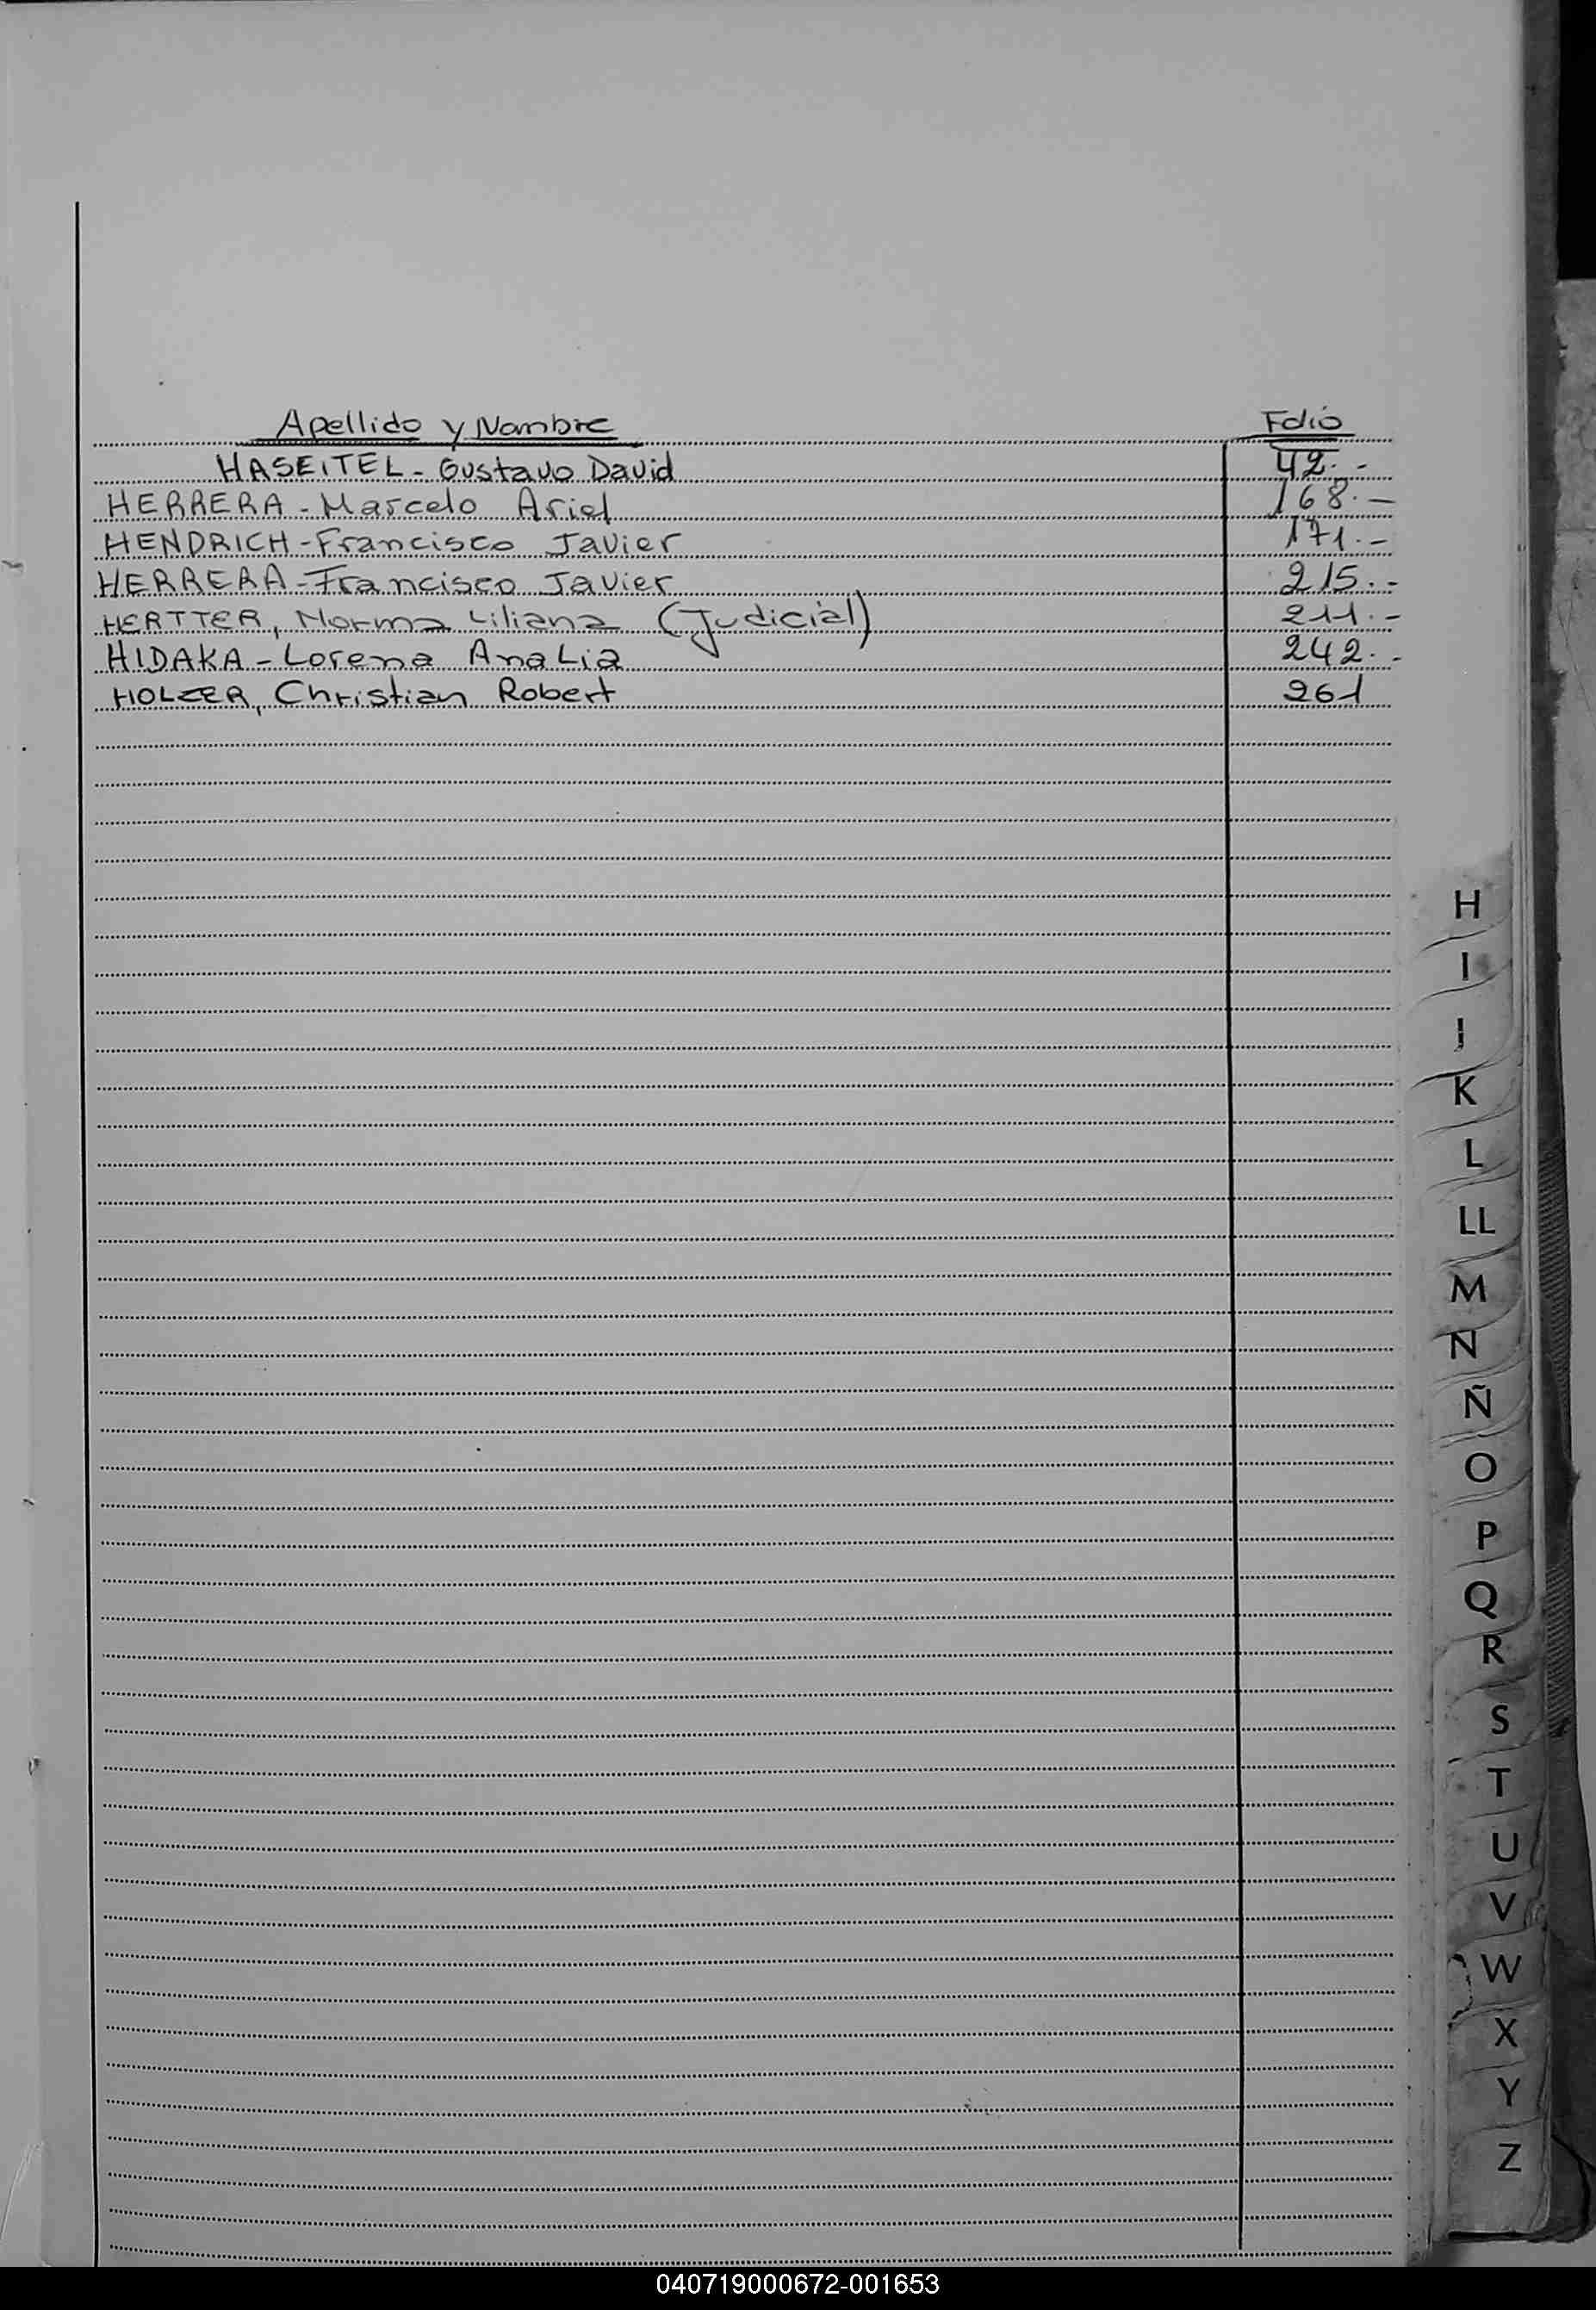 Apellido y Nombre Folio
HASEITEL - Gustavo David 42.-
HERRERA - Marcelo Ariel 168.-
HENDRICH - Francisco Javier 171.-
HERRERA - Francisco Javier 215.-
HERTTER, Norma Liliana (Judicial) 211.-
HIDAKA - Lorena AnaLia 242.-
HOLZER, Christian Robert 261
H
I
J
K
L
LL
M
N
Ñ
O
P
Q
R
S
T
U
V
W
X
Y
Z
040719000672-001653